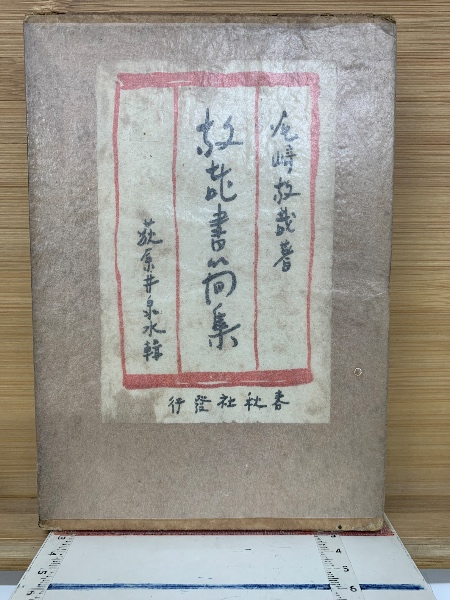 尾崎放哉著
放哉書简集
荻原井泉水輯
春秋社發行
3
4
5
6